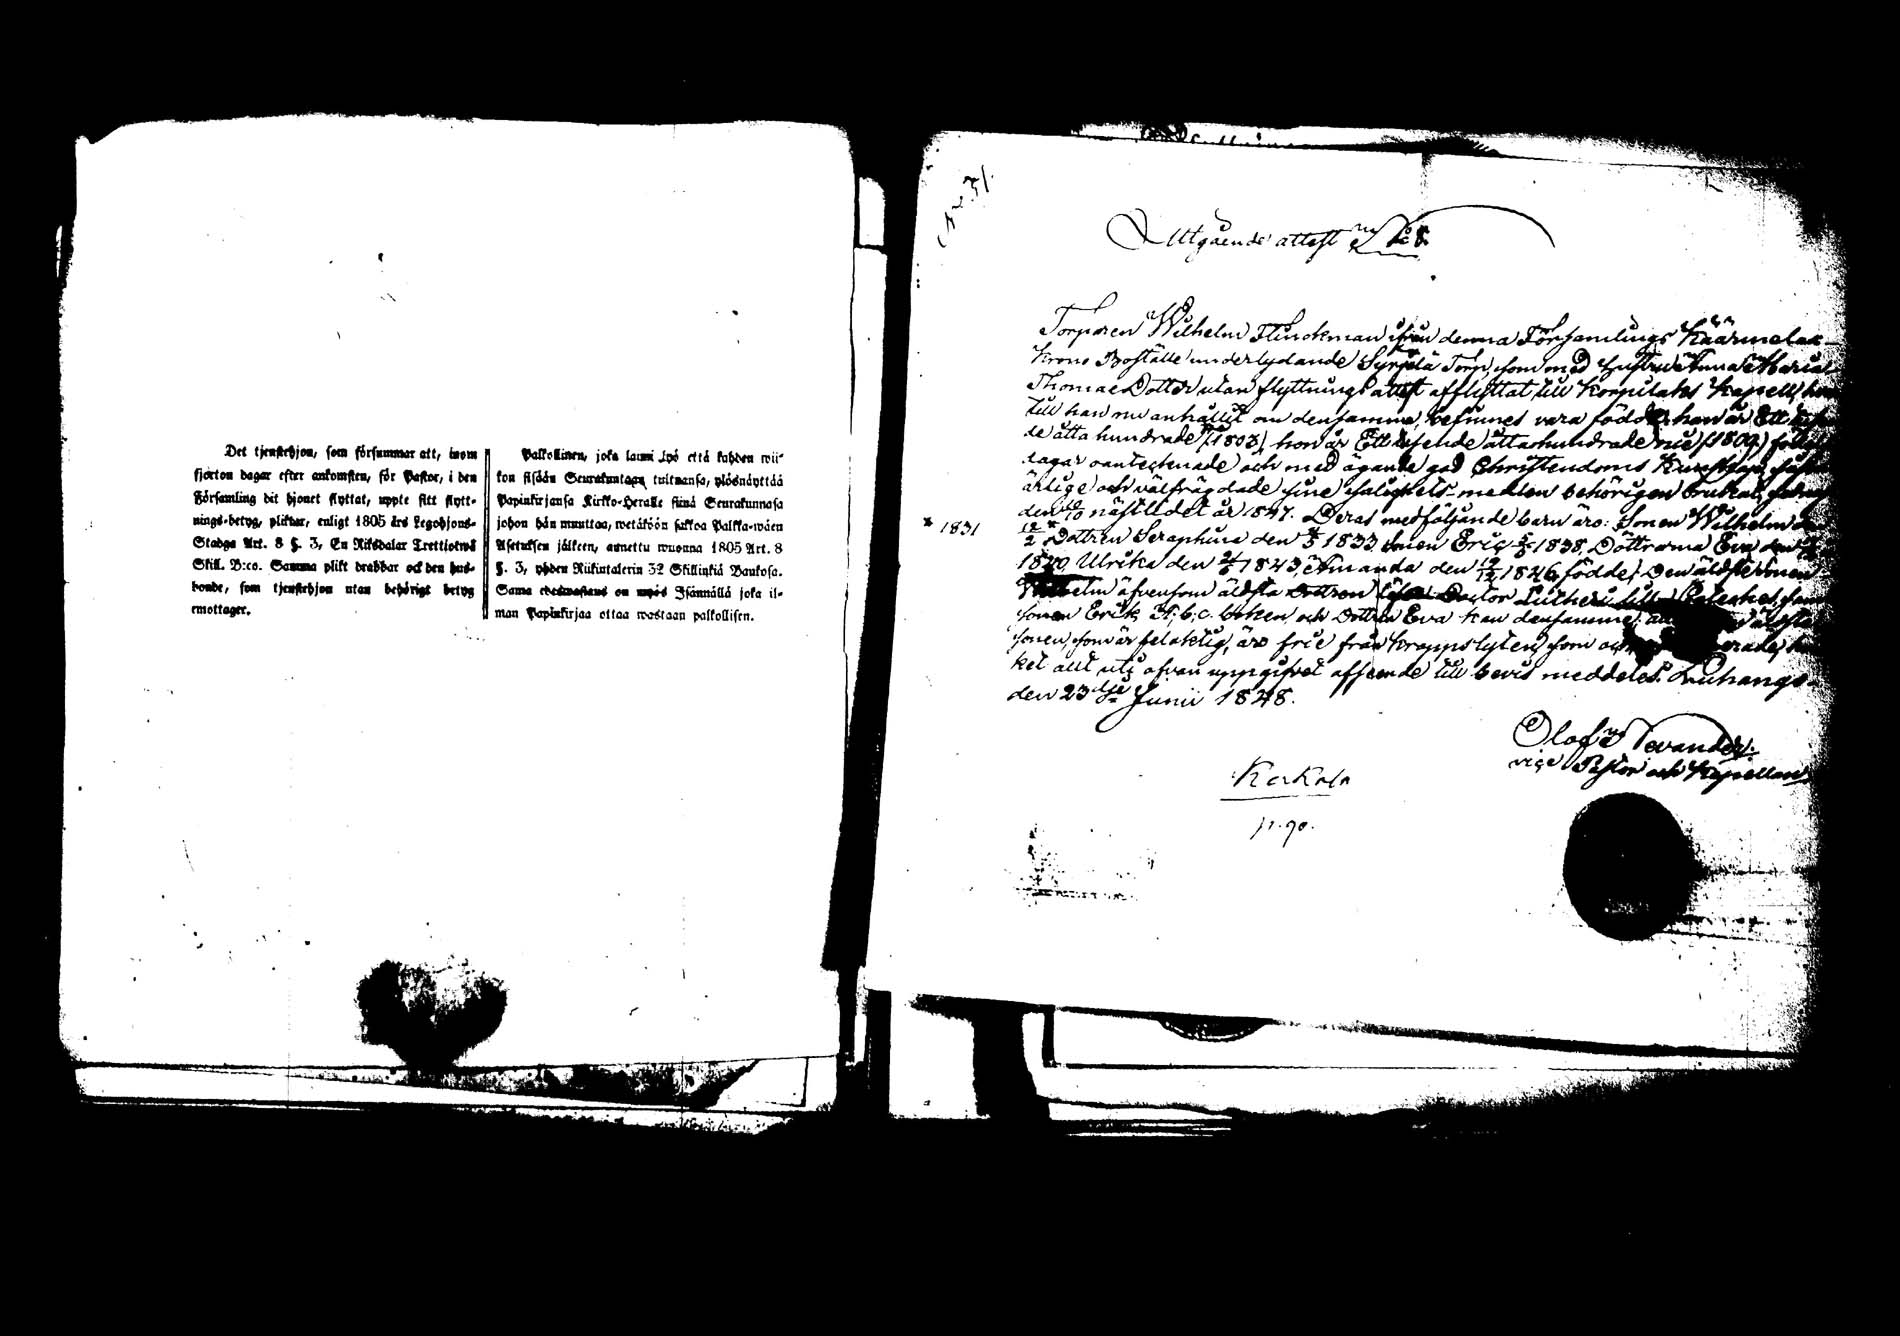 Det tjenstehjon, som försummar att, inom
fjorton dagar efter ankomsten, för Pastor, i den
Församling dit hjonet flyttat, uppte sitt flytt-
nings-betyg, pliktar, enligt 1805 års Legohjons-
Stadga Art. 8 §. 3, En Riksdalar Trettiotwå
Skill. B:co. Samma plikt drabbar ock den hus-
bonde, som tjenstehjon utan behörigt betyg
emottager.
Palkollinen, joka laimi lyö että kahden wii-
kon sisään Seurakuntaan tultuansa, ylösnäyttää
Papinkirjansa Kirkko-Herralle siinä Seurakunnasa
johon hän muuttaa, wetäköön sakkoa Palkka-wäen
Asetuksen jälkeen, annettu wuonna 1805 Art. 8
§. 3, yhden Riikintalerin 32 Skillinkiä Bankosa.
Sama edeswastaus on myös Isännällä joka il-
man Papinkirjaa ottaa wastaan palkollisen.
No 31.
Utgående attest No 8.
Torparen Wilhelm Flinckman ifrån denna Församlings Käärmelax
Krono Boställe underlydande Syrjälä Torp, som med hustru Anna Maria
Thomae Dotter utan flyttnings attest afflyttat till Korpilaks Kapell,
till han nu anhållit om densamma, befinnes vara född: han år Ett
de åtta hundrade (1803), hon år Ett tusende åttahundrade nie (1809)
oantecknade och med ägande god Christendoms Kunskap,
ärlige och välfrägdade sine salighets-medlen behörigen brukat,
den näst­lidet år 1847. Deras medföljande barn äro: Sonen Wilhelm
* 1831
12/2 * Dottren Seraphina den 1833, Sonen Eric 1838, Döttrarna Eva den
1840, Ulrika den 1843, Amanda den 1846, födde. Den äldste sonen
äfvensom äldsta Dottren Doctor Lutheri lilla
sonen Erik A, b, c. boken och Dottren Eva kan densamma;
sonen, som är felaktig, äro frie från kroppslyten, som
ket allt uti ofvan uppgifvet afseende till bevis meddeles. Luhango
den 23dje Junii 1848.
Olof Nevander.
vice Pastor och Kapellan.
Karkola
p. 90.